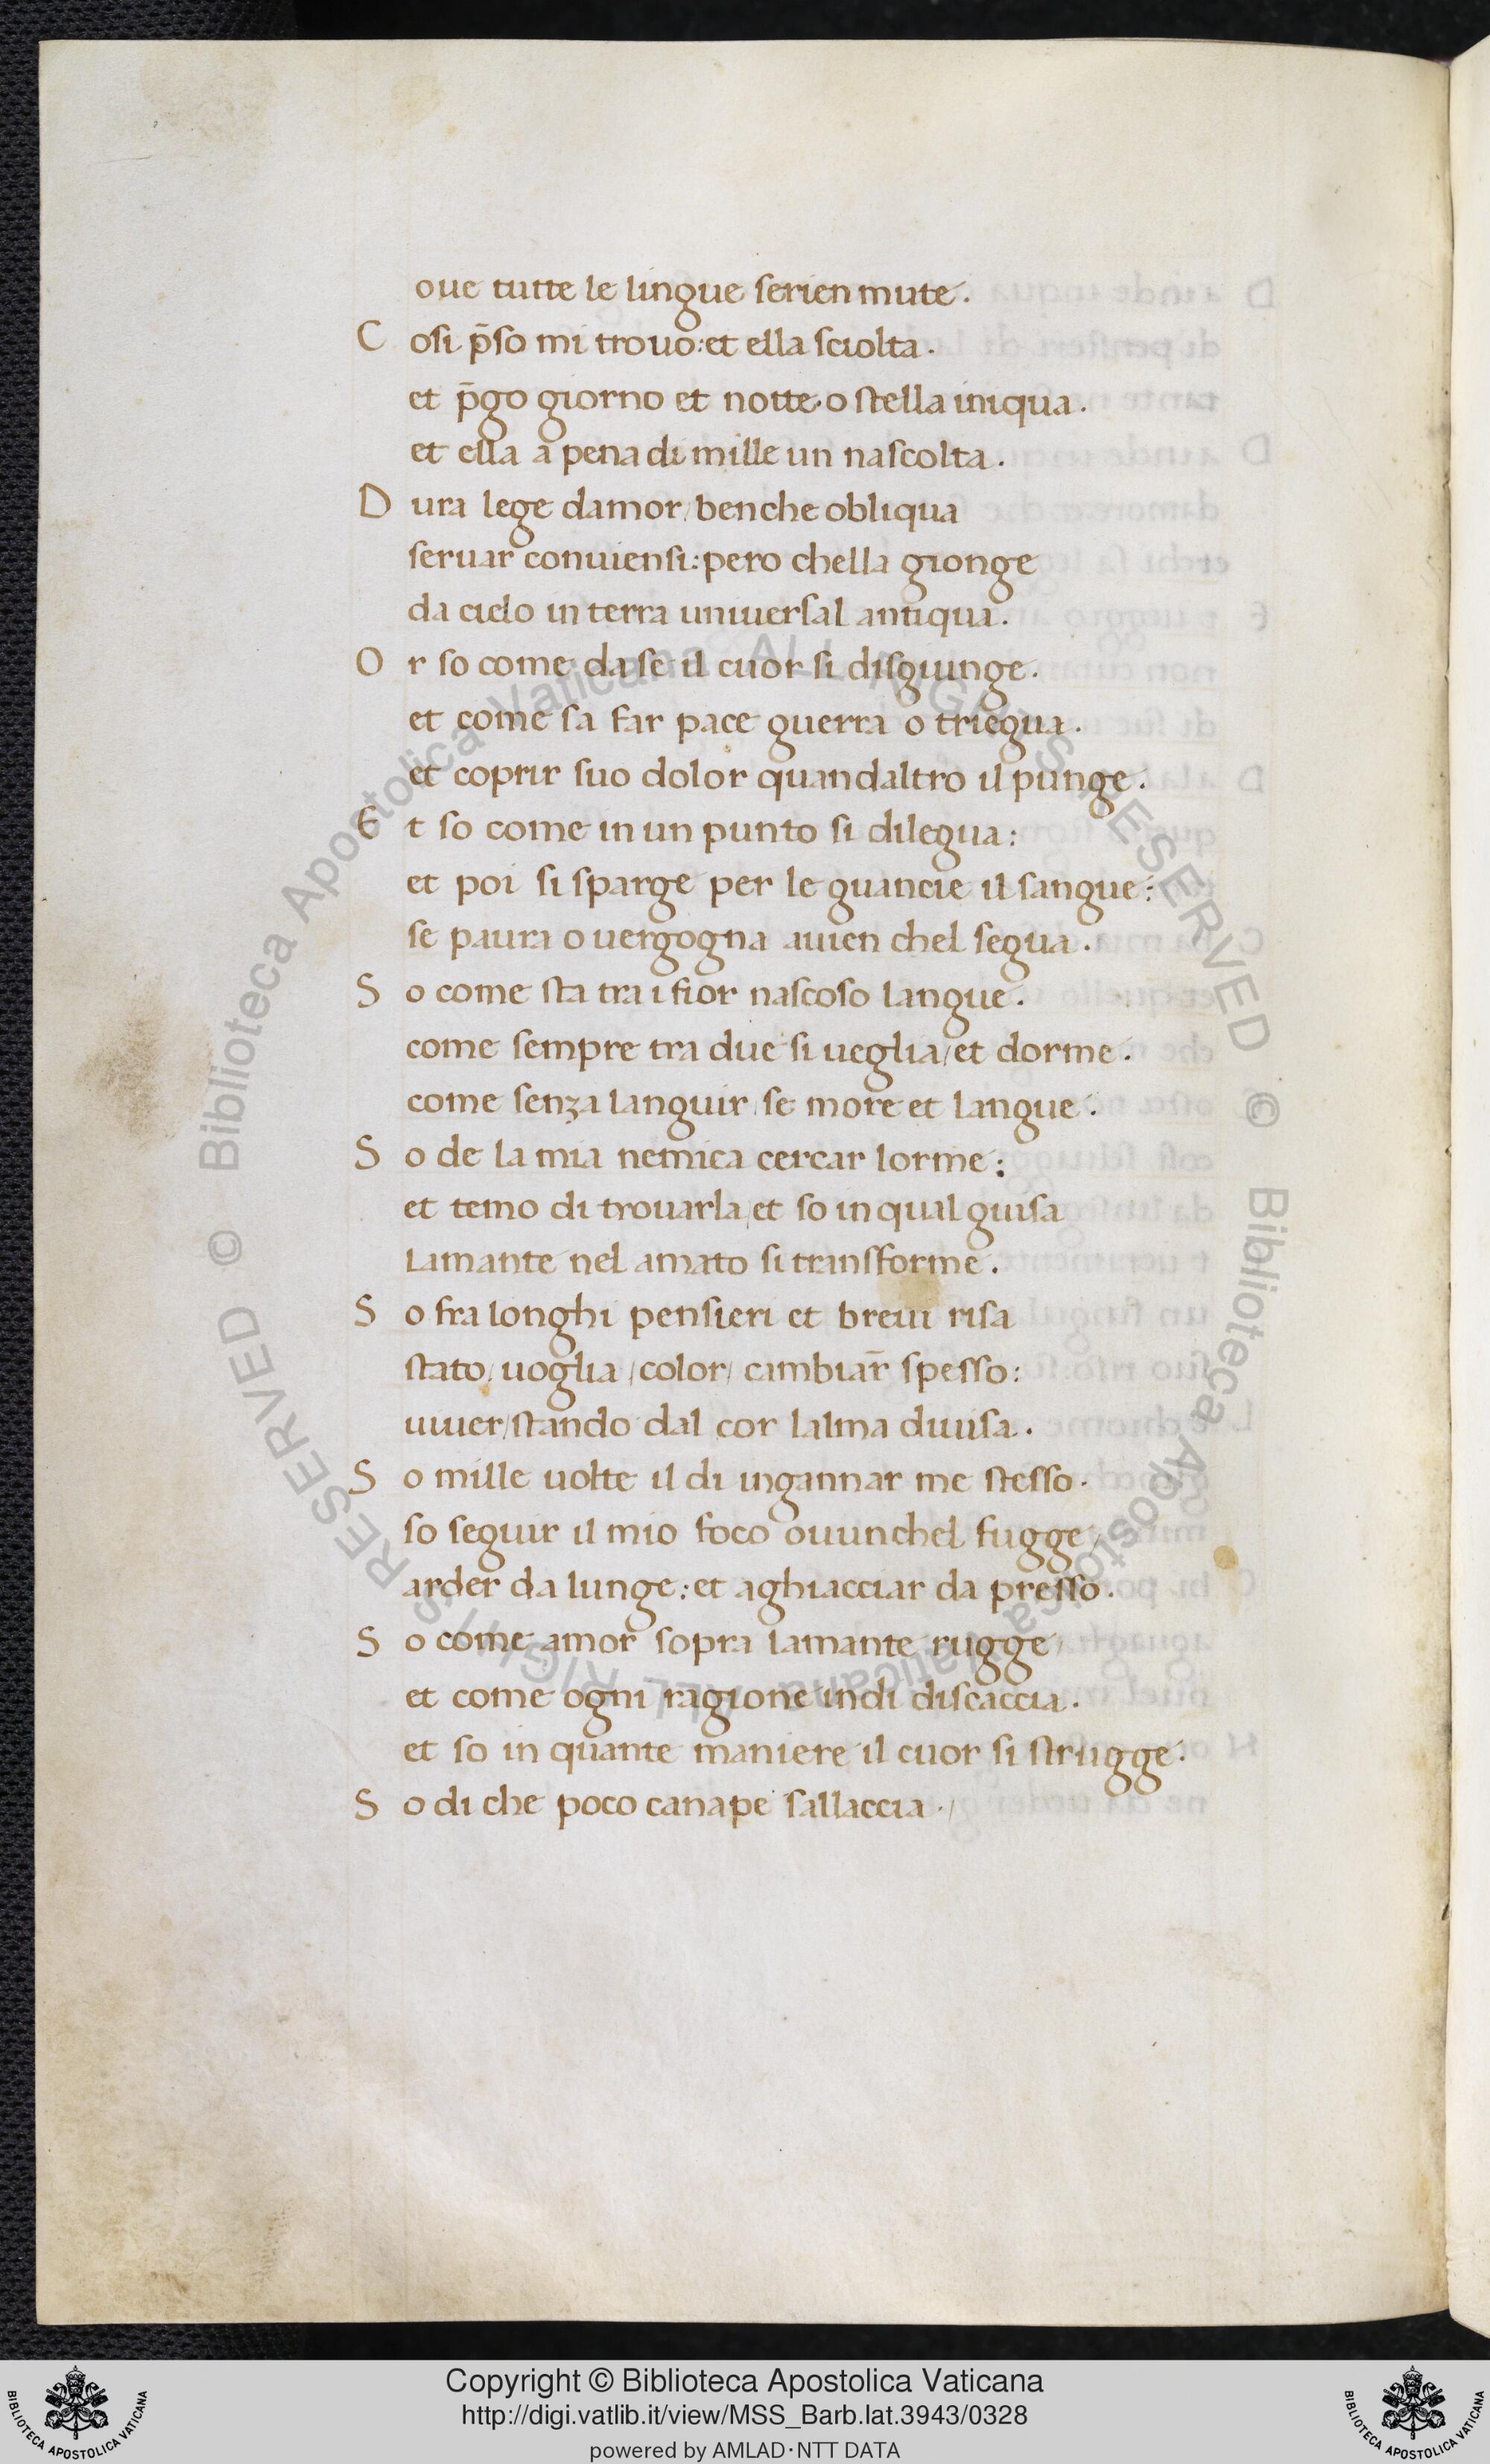 oue tutte le lingue serien mute.
C osi p̄so mi trouo: et ella sciolta.
et p̄go giorno et notte. o stella iniqua.
et ella a pena di mille un nascolta.
D ura lege damor/ benche obliqua
seruar conuiensi: pero chella gionge
da cielo in terra uniuersal antiqua.
O r so come da se il cuor si disgiunge.
et come sa far pace guerra o triegua.
et coprir suo dolor quandaltro il punge.
E t so come in un punto si dilegua:
et poi si sparge per le guancie il sangue:
se paura o uergogna auien chel segua.
S o come sta tra i fior nascoso langue.
come sempre tra due si ueglia/ et dorme.
come senza languir se more et langue.
S o de la mia nemica cercar lorme:
et temo di trouarla/ et so in qual guisa
Lamante nel amato si transforme.
S o fra longhi pensieri et breui risa
stato/ uoglia/ color/ cambiar̄ spesso:
uiuer/ stando dal cor lalma diuisa.
S o mille uolte il di ingannar me stesso.
so seguir il mio foco ouunchel fugge/
arder da lunge: et aghiacciar da presso.
S o come amor sopra lamante rugge/
et come ogni ragione indi discaccia.
et so in quante maniere il cuor si strugge.
S o di che poco canape sallaccia./
© Biblioteca Apostolica Vaticana ALL RIGHTS RESERVED © Biblioteca Apostolica Vaticana ALL RIGHTS RESERVED
Copyright © Biblioteca Apostolica Vaticana
http://digi.vatlib.it/view/MSS_Barb.lat.3943/0328
powered by AMLAD·NTT DATA
BIBLIOTECA APOSTOLICA VATICANA
BIBLIOTECA APOSTOLICA VATICANA